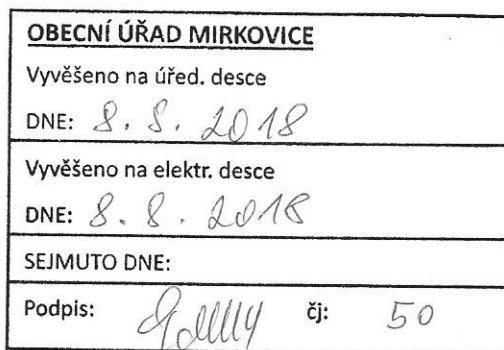 OBECNÍ ÚŘAD MIRKOVICE
Vyvěšeno na úřed. desce
DNE: 8. 8. 2018
Vyvěšeno na elektr. desce
DNE: 8. 8. 2018
SEJMUTO DNE:
Podpis: čj: 50